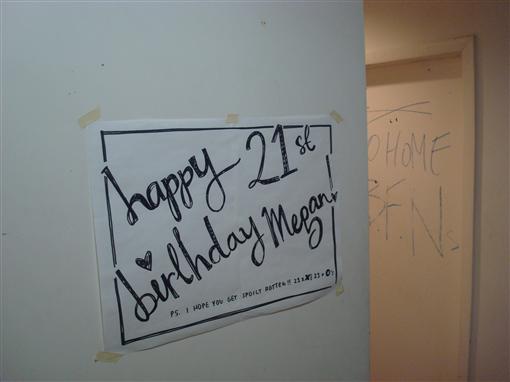 happy 21st
birthday Megan
PS. I HOPE YOU GET SPOILT ROTTEN!!
HOME
F. N